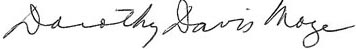 Dorothy Davis Moze